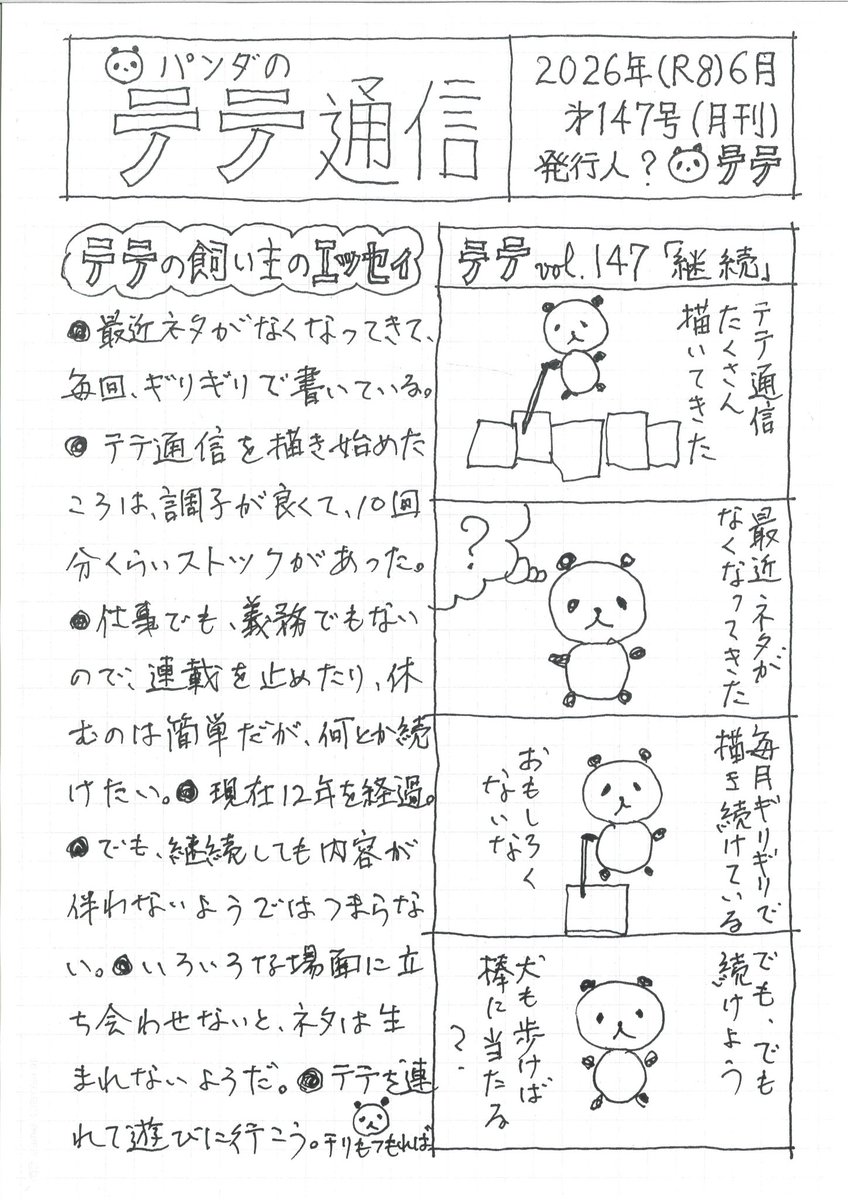 パンダの
テテ通信
2026年(R8)6月
才147号(月刊)
発行人?テテ
テテの飼い主のエッセイ
●最近ネタがなくなってきて、
毎回、ギリギリで書いている。
●テテ通信を描き始めた
ころは、調子が良くて、10回
分くらいストックがあった。
●仕事でも、義務でもない
ので、連載を止めたり、休
むのは簡単だが、何とか続
けたい。●現在12年を経過。
●でも、継続しても内容が
伴わないようではつまらな
い。●いろいろな場面に立
ち会わせないと、ネタは生
まれないようだ。●テテを連
れて遊びに行こう。チリもつもれば
テテvol.147「継続」
テテ通信
たくさん
描いてきた
最近、ネタが
なくなってきた
?
毎月ギリギリで
描き続けている
おもしろく
ないな
でも、でも
続けよう
犬も歩けば
棒に当たる
?